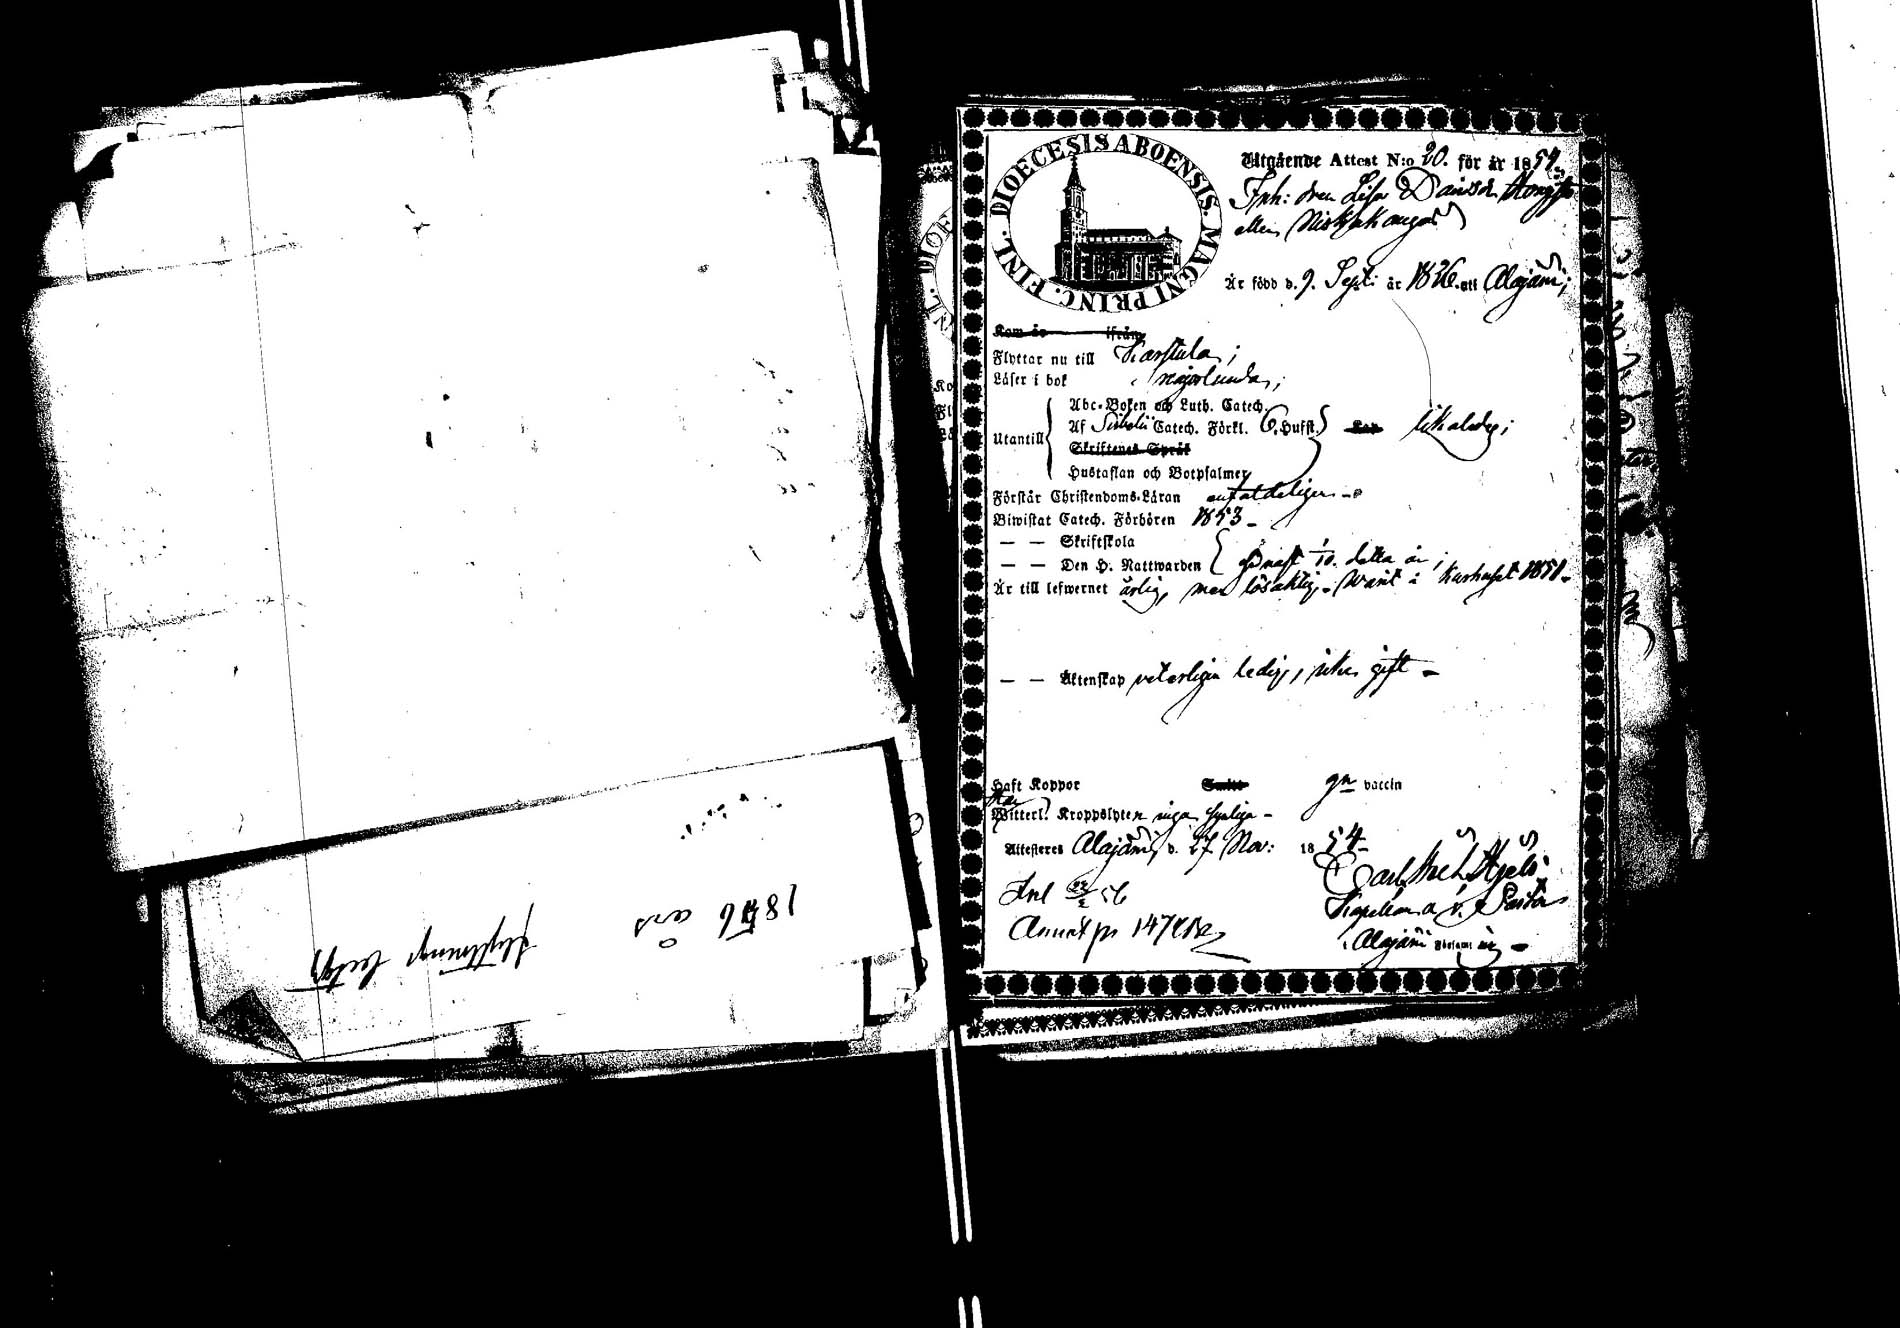 1856 års
flyttnings betyg
DIOECESIS ABOENSIS. MAGNI PRINC. FINL.
Utgående Attest N:o 20. för år 1854.
Inh: dren Lisa Davidsdr.
eller Niskakangas
Är född d. 9. Sept: år 1826. att Alajärvi;
Kom år ifrån
Flyttar nu till Karstula;
Läser i bok någorlunda;
Utantill
Abc-Boken och Luth. Catech.
Af Sebelii Catech. Förkl. 6. Hufst. likaledes;
Skriftenes Språk
Hustaflan och Botpsalmer
Förstår Christendoms-Läran enfaldeligen -
Biwistat Catech. Förhören 1853 -
— — Skriftskola
— — Den H. Nattwarden sednast 1/10. detta år;
Är till lefwernet ärlig, men lösaktig. - Warit å Kurhuset 1851 -
— — Äktenskap veterligen ledig, icke gift -
Haft Koppor Smitt gn vaccin
Har
Witterl. Kroppslyten inga synliga -
Attesteras Alajärvi, d. 27 Nov: 1854 -
Carl
Inl 22/2 56
Kapellan o. v. Pastor
Annot p 147
i Alajärvi Församling -